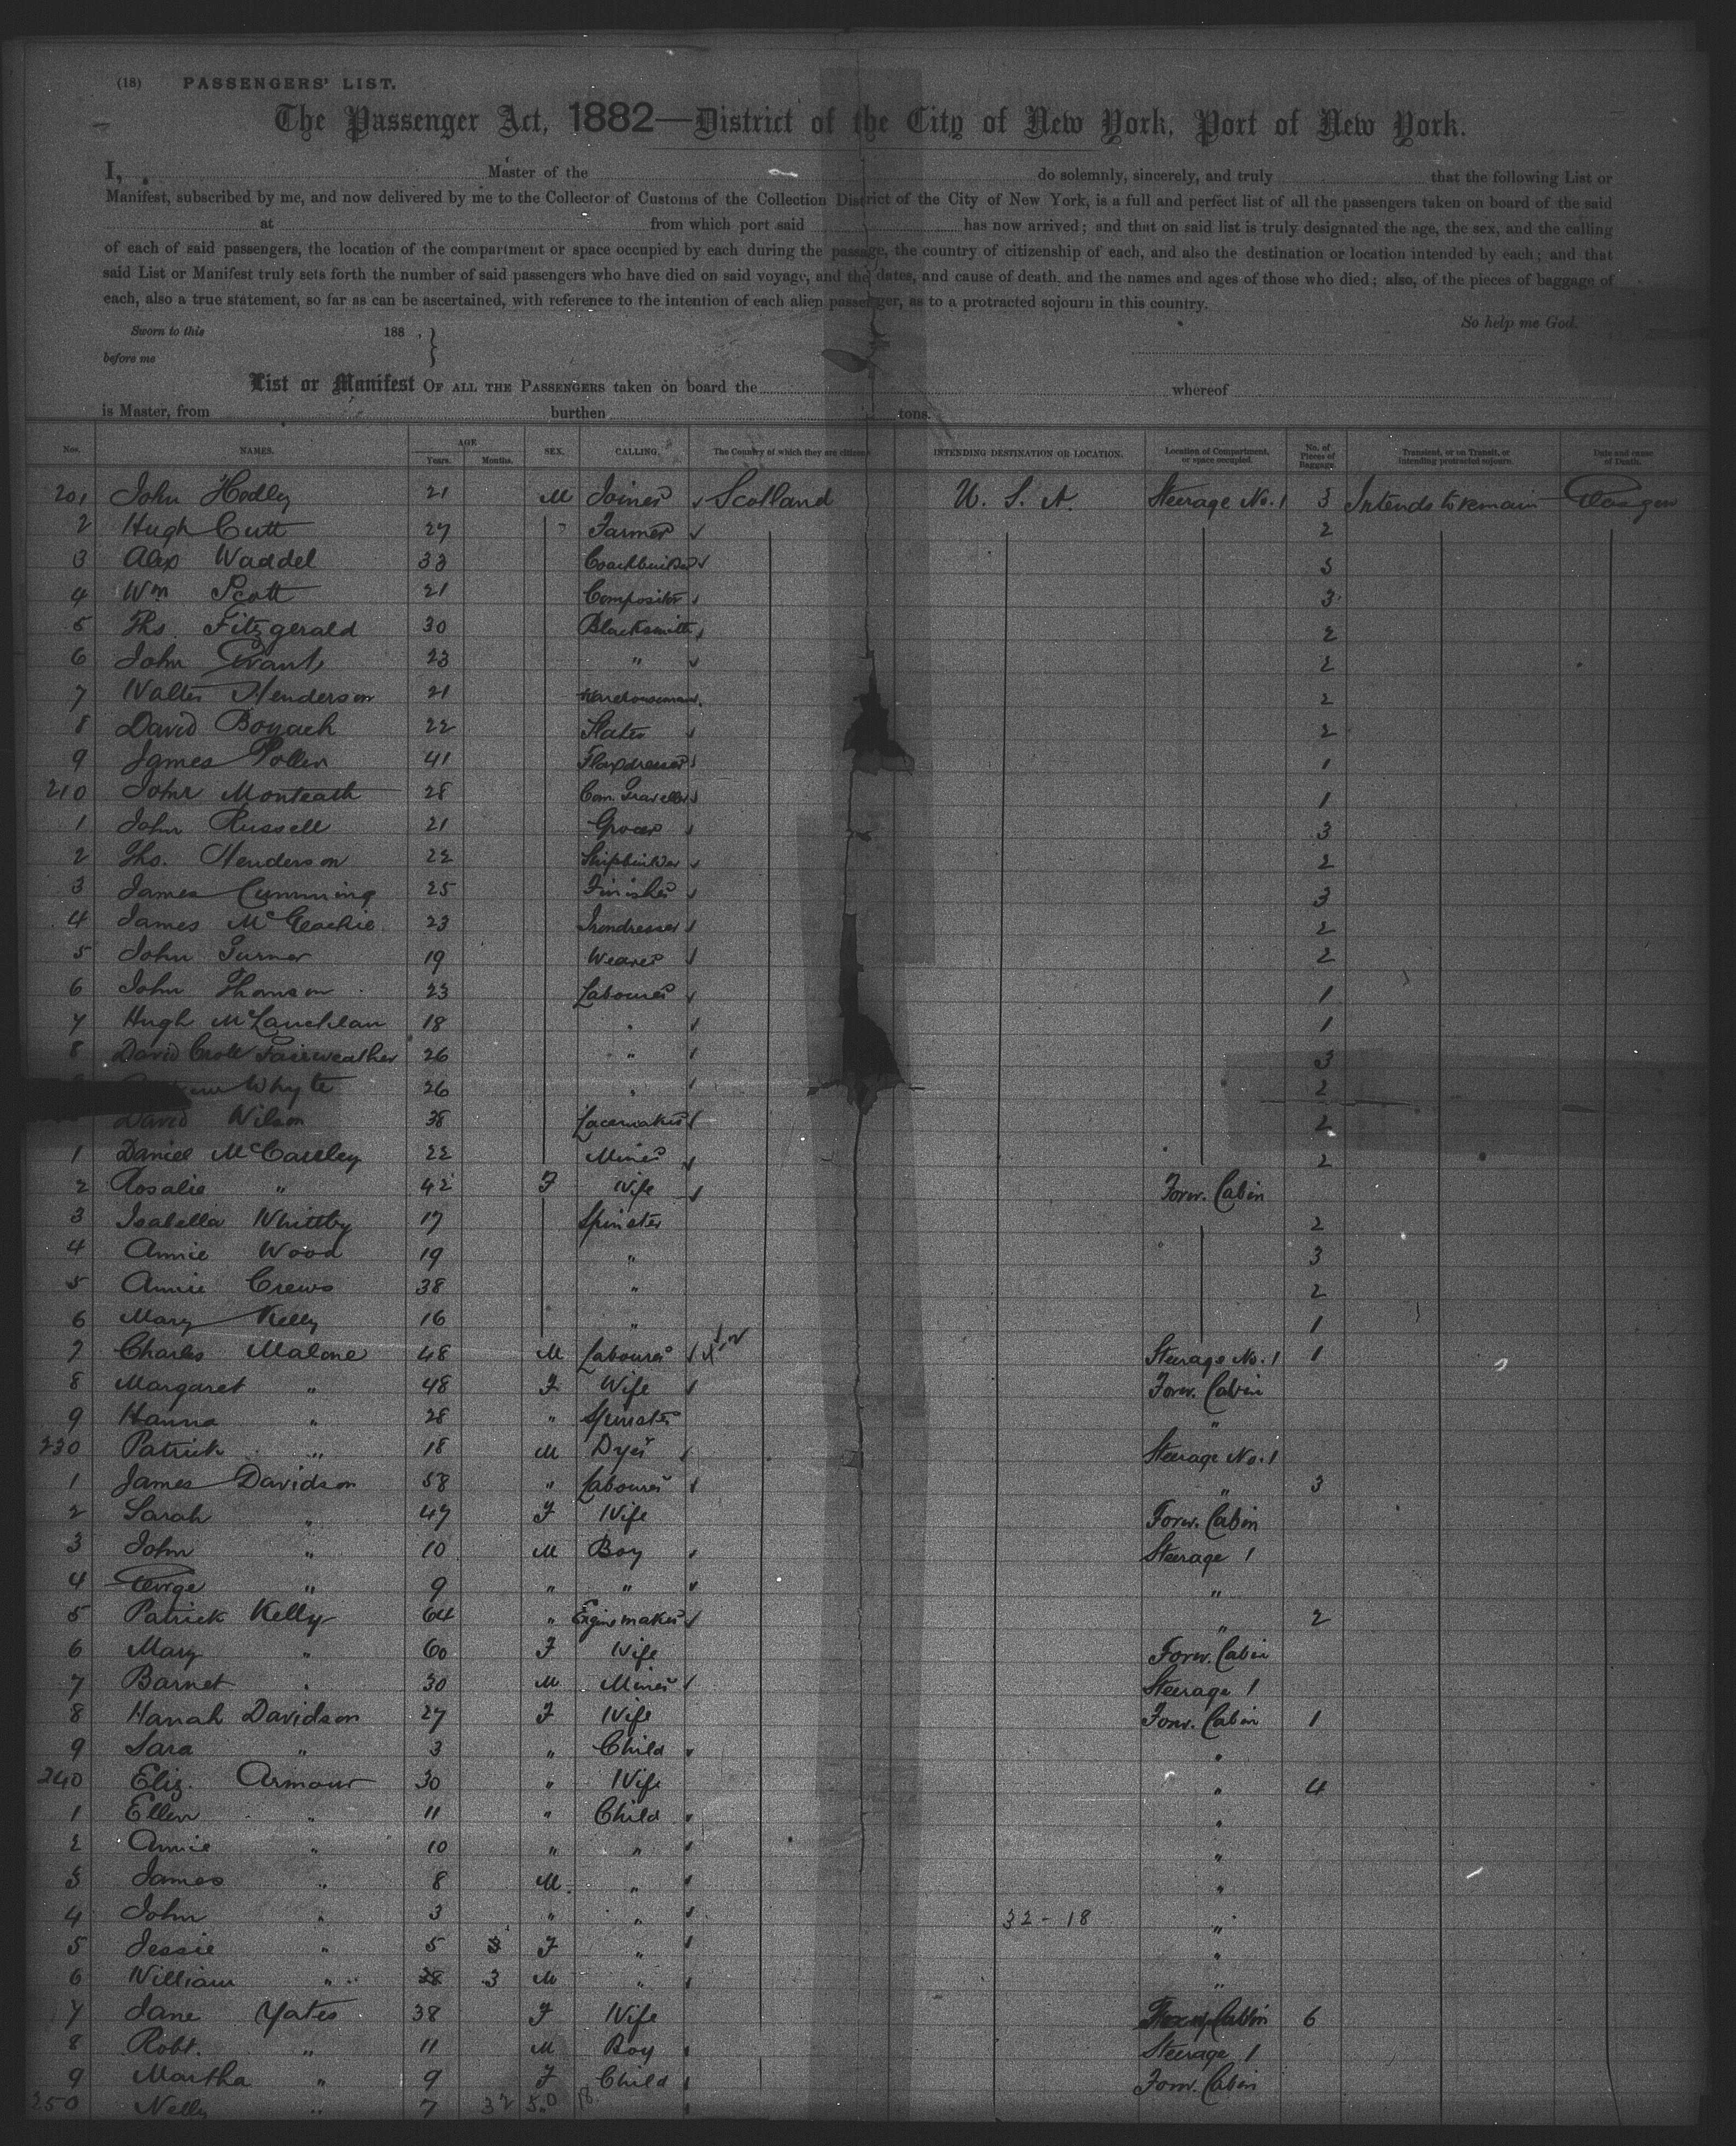 (18) PASSENGERS' LIST.
The Passenger Act, 1882—District of the City of New York, Port of New York.
I, Master of the do solemnly, sincerely, and truly that the following List or
Manifest, subscribed by me, and now delivered by me to the Collector of Customs of the Collection District of the City of New York, is a full and perfect list of all the passengers taken on board of the said
at from which port said has now arrived; and that on said list is truly designated the age, the sex, and the calling
of each of said passengers, the location of the compartment or space occupied by each during the passage, the country of citizenship of each, and also the destination or location intended by each; and that
said List or Manifest truly sets forth the number of said passengers who have died on said voyage, and the dates, and cause of death, and the names and ages of those who died; also, of the pieces of baggage of
each, also a true statement, so far as can be ascertained, with reference to the intention of each alien passenger, as to a protracted sojourn in this country.
So help me God.
Sworn to this 188 .
before me
List or Manifest OF ALL THE PASSENGERS taken on board the whereof
is Master, from burthen tons.
Nos. NAMES. AGE Years. Months. SEX. CALLING. The Country of which they are citizens. INTENDING DESTINATION OR LOCATION. Location of Compartment, or space occupied. No. of Pieces of Baggage. Transient, or in Transit, or intending protracted sojourn. Date and cause of Death.
201 John Hodly 21 M Joiner Scotland U. S. A. Steerage No. 1 3 Intends to remain Glasgow
2 Hugh Cutt 27 Farmer 2
3 Alex Waddel 33 Coachbuilder 3
4 Wm Scott 21 Compositor 3
5 Ths. Fitzgerald 30 Blacksmith 2
6 John Grant 23 " 2
7 Walter Henderson 21 Warehouseman 2
8 David Boyach 22 Slater 2
9 James Pollen 41 Flaxdresser 1
210 John Monteath 28 Com. Traveller 1
1 John Russell 21 Grocer 3
2 Tho. Henderson 22 Shipbuilder 2
3 James Cumming 25 Finisher 3
4 James McGeachie 23 Irondresser 2
5 John Turner 19 Weaver 2
6 John Thomson 23 Labourer 1
7 Hugh McLauchlan 18 " 1
8 David Croll Fairweather 26 " 3
Whyte 26 " 2
David Wilson 38 Lacemaker 2
1 Daniel McCauley 22 Miner 2
2 Rosalie " 42 F Wife Forw. Cabin
3 Isabella Whittby 17 Spinster 2
4 Annie Wood 19 " 3
5 Annie Crews 38 " 2
6 Mary Kelly 16 " 1
7 Charles Malone 48 M Labourer Steerage No. 1 1
8 Margaret " 48 F Wife Forw. Cabin
9 Hanna " 28 " Spinster "
230 Patrick " 18 M Dyer Steerage No. 1
1 James Davidson 58 " Labourer " 3
2 Sarah " 47 F Wife Forw. Cabin
3 John " 10 M Boy Steerage 1
4 George " 9 " " "
5 Patrick Kelly 64 " Enginemaker " 2
6 Mary " 60 F Wife Forw. Cabin
7 Barnet " 30 M Miner Steerage 1
8 Hanah Davidson 27 F Wife Forw. Cabin 1
9 Sara " 3 " Child "
240 Eliz. Armour 30 " Wife " 4
1 Ellen " 11 " Child "
2 Annie " 10 " " "
3 James " 8 M " "
4 John " 3 " " 32 - 18 "
5 Jessie " 5 F " "
6 William " 3 M " "
7 Jane Yates 38 F Wife Cabin 6
8 Robt. " 11 M Boy Steerage 1
9 Martha " 9 F Child Forw. Cabin
250 Nelly " 7 32 50 18